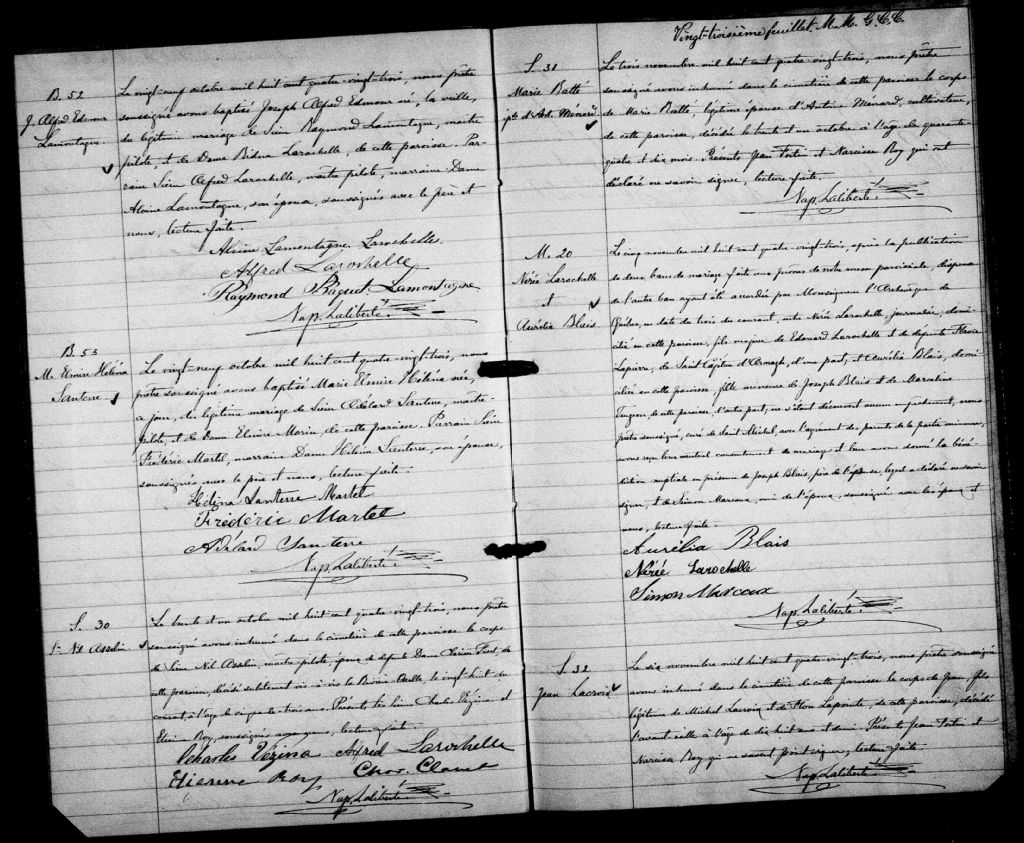 B. 52
J. Alfred Edmour
Lamontagne.
Le vingt-neuf octobre mil huit cent quatre-vingt-trois, nous prêtre
soussigné avons baptisé Joseph Alfred Edmour né, la veille,
du légitime mariage de Sieur Raymond Lamontagne, maître
pilote, et de Dame Larochelle, de cette paroisse. Par-
rain Sieur Alfred Larochelle, maître pilote, marraine Dame
Alvine Lamontagne, son épouse, soussignés avec le père et
nous, lecture faite.
Alvine Lamontagne Larochelle.
Alfred Larochelle
Raymond Paquet Lamontagne
Nap. Laliberté Ptre
B. 53
M. Elmire Héléna
Santerre
Le vingt-neuf octobre mil huit cent quatre-vingt-trois, nous
prêtre soussigné avons baptisé Marie Elmire Héléna née,
ce jour, du légitime mariage de Sieur Santerre, maître-
pilote, et de Dame Elmire Morin, de cette paroisse. Parrain Sieur
Frédéric Martel, marraine Dame Santerre, son épouse,
soussignés avec le père et nous, lecture faite.
Santerre Martel
Frédéric Martel
Santerre
Nap. Laliberté Ptre
S. 30
Nil Asselin
Le trente et un octobre mil huit cent quatre-vingt-trois, nous prêtre
soussigné avons inhumé dans le cimetière de cette paroisse le corps
de Sieur Nil Asselin, maître-pilote, époux de défunte Dame de
cette paroisse, décédé subitement vis-à-vis la Rivière Ouelle, le vingt-huit du
courant, à l'âge de cinquante-trois ans. Présents les Sieurs Charles Vézina et
Etienne Roy, soussignés avec nous, lecture faite.
Charles Vézina Alfred Larochelle
Etienne Roy
Nap. Laliberté Ptre
Vingt-troisième feuillet. M. M. G. C. C.
S. 31
Marie Batté
Ant. Ménard
Le trois novembre mil huit cent quatre-vingt-trois, nous prêtre
soussigné avons inhumé dans le cimetière de cette paroisse le corps
de Marie Batté, légitime épouse d'Antoine Ménard, cultivateur,
de cette paroisse, décédée le trente et un octobre à l'âge de quarante-
quatre et dix mois. Présents Jean Fortin et Narcisse Roy qui ont
déclaré ne savoir signer, lecture faite.
Nap. Laliberté Ptre
M. 20
Nérée Larochelle
&
Aurélia Blais.
Le cinq novembre mil huit cent quatre-vingt-trois, après la publication
de deux bans de mariage faite aux prônes de notre messe paroissiale, dispense
de l'autre ban ayant été accordée par Monseigneur l'Archevêque de
Québec, en date du trois du courant, entre Nérée Larochelle, journalier, domi-
cilié en cette paroisse, fils majeur de Edouard Larochelle et de défunte Flavie
de Saint Cajetan d'Armagh, d'une part, et Aurélia Blais, domi-
ciliée en cette paroisse, fille mineure de Joseph Blais et de Marceline
de cette paroisse, d'autre part; ne s'étant découvert aucun empêchement, nous
prêtre soussigné, curé de Saint Michel, avec l'agrément des parents de la partie mineure,
avons reçu leur mutuel consentement de mariage et leur avons donné la béné-
diction nuptiale en présence de Joseph Blais, père de l'épouse, lequel a déclaré ne savoir
signer, et de Simon Marcoux, ami de l'époux, soussigné avec les époux et
nous, lecture faite.
Aurélia Blais
Nérée Larochelle
Simon Marcoux
Nap. Laliberté Ptre
S. 32
Jean Lacroix
Le six novembre mil huit cent quatre-vingt-trois, nous prêtre soussigné
avons inhumé dans le cimetière de cette paroisse le corps de Jean, fils
légitime de Michel Lacroix et de Lapointe, de cette paroisse, décédé
l'avant-veille à l'âge de dix-huit ans et demi. Présents Jean Fortin et
Narcisse Roy qui ne savent point signer, lecture faite.
Nap. Laliberté Ptre